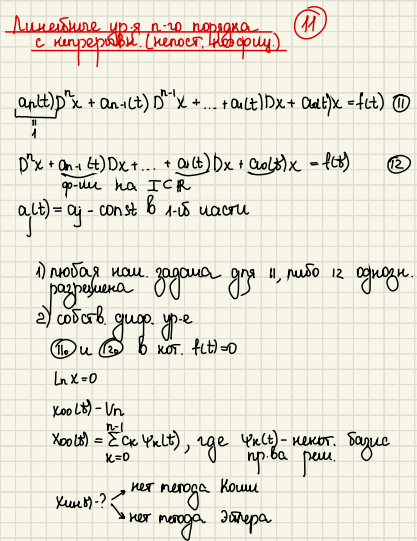 Линейные ур-я n-го порядка ⑪
с непрерывн. (непост. коэффиц.)
aₙ(t)Dⁿx + aₙ₋₁(t) Dⁿ⁻¹x + ... + a₁(t)Dx + a₀(t)x = f(t) ⑪
"
1
Dⁿx + aₙ₋₁(t) Dx + ... + a₁(t) Dx + a₀(t)x = f(t) ⑫
ф-ии на I⊂R
aⱼ(t) = aⱼ - const в 1-ой части
1) любая нач. задача для 11, либо 12 однозн.
разрешена
2) собств. дифф. ур-е
⑪₀ и ⑫₀ в кот. f(t)=0
Lₙx=0
x₀₀(t) - Vₙ
x₀₀(t) = Σₖ₌₀ⁿ⁻¹ cₖ φₖ(t), где φₖ(t) - некот. базис
пр-ва реш.
нет метода Коши
xчн(t) - ?
нет метода Эйлера